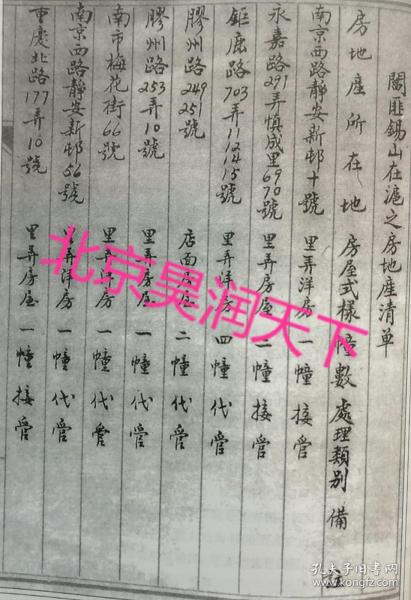 閻匪錫山在滬之房地產清单
房地產所在地 房屋式樣 幢數 處理類别 備註
南京西路靜安新邨十號 里弄洋房 一幢 接管
永嘉路291弄慎成里69 70號 里弄房屋 二幢 接管
鉅鹿路703弄11 12 14 15號 里弄洋房 四幢 代管
膠州路249 251號 店面房屋 二幢 代管
膠州路253弄10號 里弄房屋 一幢 代管
南市梅花街66號 里弄房 一幢 代管
南京西路靜安新邨56號 里弄洋房 一幢 代管
重慶北路177弄10號 里弄房屋 一幢 接管
北京昊润天下
孔夫子旧书网